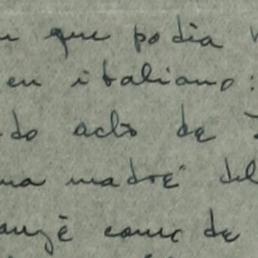 que podia
en italiano:
do acto de
na madre del
come de